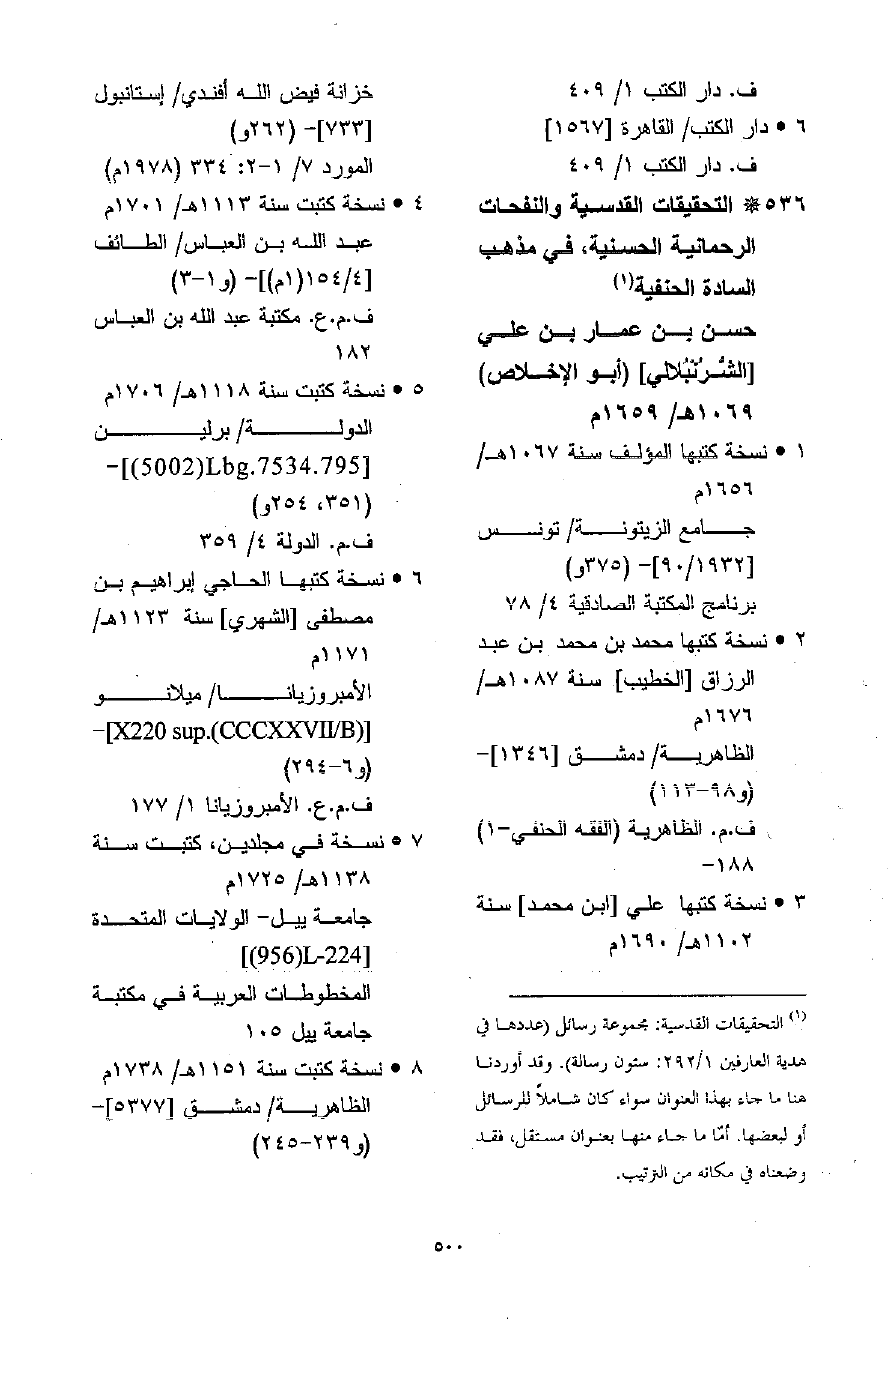 ف. دار الكتب ١/ ٤٠٩
٦ • دار الكتب/ القاهرة [١٥٦٧]
ف. دار الكتب ١/ ٤٠٩
٥٣٦* التحقيقات القدسية والنفحات
الرحمانية الحسنية، في مذهب
السادة الحنفية(١)
حسن بن عمار بن علي
[الشُّرُنْبُلالي] (أبو الإخلاص)
١٠٦٩هـ/ ١٦٥٩م
١ • نسخة كتبها المؤلف سنة ١٠٦٧هـ/
١٦٥٦م
جامع الزيتونة/ تونس
[٩٠/١٩٣٢]- (٣٧٥و)
برنامج المكتبة الصادقية ٤/ ٧٨
٢ • نسخة كتبها محمد بن محمد بن عبد
الرزاق [الخطيب] سنة ١٠٨٧هـ/
١٦٧٦م
الظاهرية/ دمشق [١٣٤٦]-
(و٩٨-١١٣)
ف.م. الظاهرية (الفقه الحنفي-١)
١٨٨-
٣ • نسخة كتبها علي [ابن محمد] سنة
١١٠٢هـ/ ١٦٩٠م
(١) التحقيقات القدسية: مجموعة رسائل (عددها في
هدية العارفين ٢٩٢/١: ستون رسالة). وقد أوردنا
هنا ما جاء بهذا العنوان سواء كان شاملاً للرسائل
أو لبعضها. أمّا ما جاء منها بعنوان مستقل، فقد
وضعناه في مكانه من الترتيب.
خزانة فيض الله أفندي/ إستانبول
[٧٣٣]- (٢٦٢و)
المورد ٧/ ١-٢: ٣٣٤ (١٩٧٨م)
٤ • نسخة كتبت سنة ١١١٣هـ/ ١٧٠١م
عبد الله بن العباس/ الطائف
[١٥٤/٤(١م)]- (و١-٣)
ف.م.ع. مكتبة عبد الله بن العباس
١٨٢
٥ • نسخة كتبت سنة ١١١٨هـ/ ١٧٠٦م
الدولة/ برلين
[(5002)Lbg.7534.795]-
(٣٥١، ٢٥٤و)
ف.م. الدولة ٤/ ٣٥٩
٦ • نسخة كتبها الحاجي إبراهيم بن
مصطفى [الشهري] سنة ١١٢٣هـ/
١١٧١م
الأمبروزيانا/ ميلانو
[X220 sup.(CCCXXVII/B)]-
(و٦-٢٩٤)
ف.م.ع. الأمبروزيانا ١/ ١٧٧
٧ • نسخة في مجلدين، كتبت سنة
١١٣٨هـ/ ١٧٢٥م
جامعة ييل- الولايات المتحدة
[(956)L-224]
المخطوطات العربية في مكتبة
جامعة ييل ١٠٥
٨ • نسخة كتبت سنة ١١٥١هـ/ ١٧٣٨م
الظاهرية/ دمشق [٥٣٧٧]-
(و٢٣٩-٢٤٥)
٥٠٠